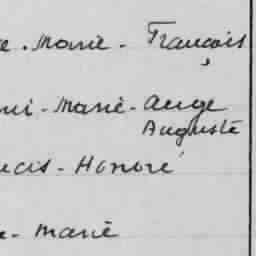 e - Marie - François
ri - Marie - Ange
Auguste
cis - Honoré
- Marie